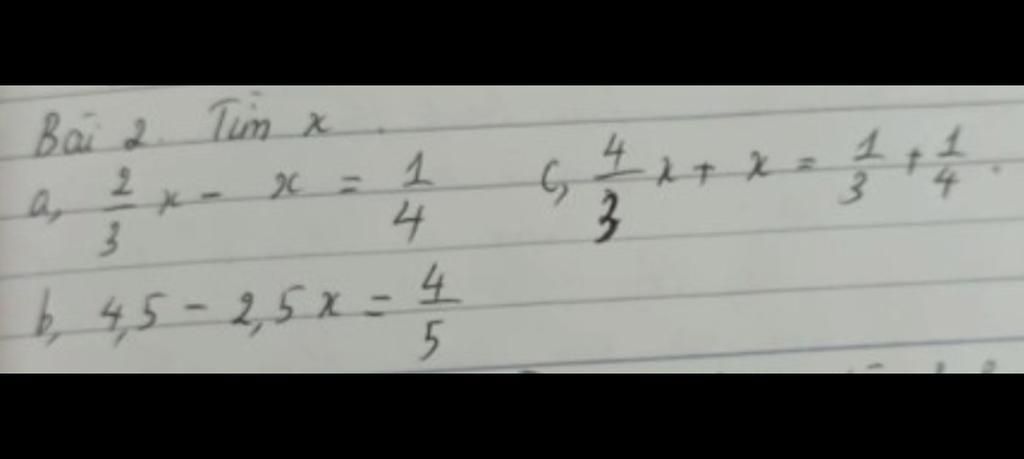 Bài 2. Tìm x.
a, 2/3 x - x = 1/4 c, 4/3 x + x = 1/3 + 1/4.
b, 4,5 - 2,5x = 4/5